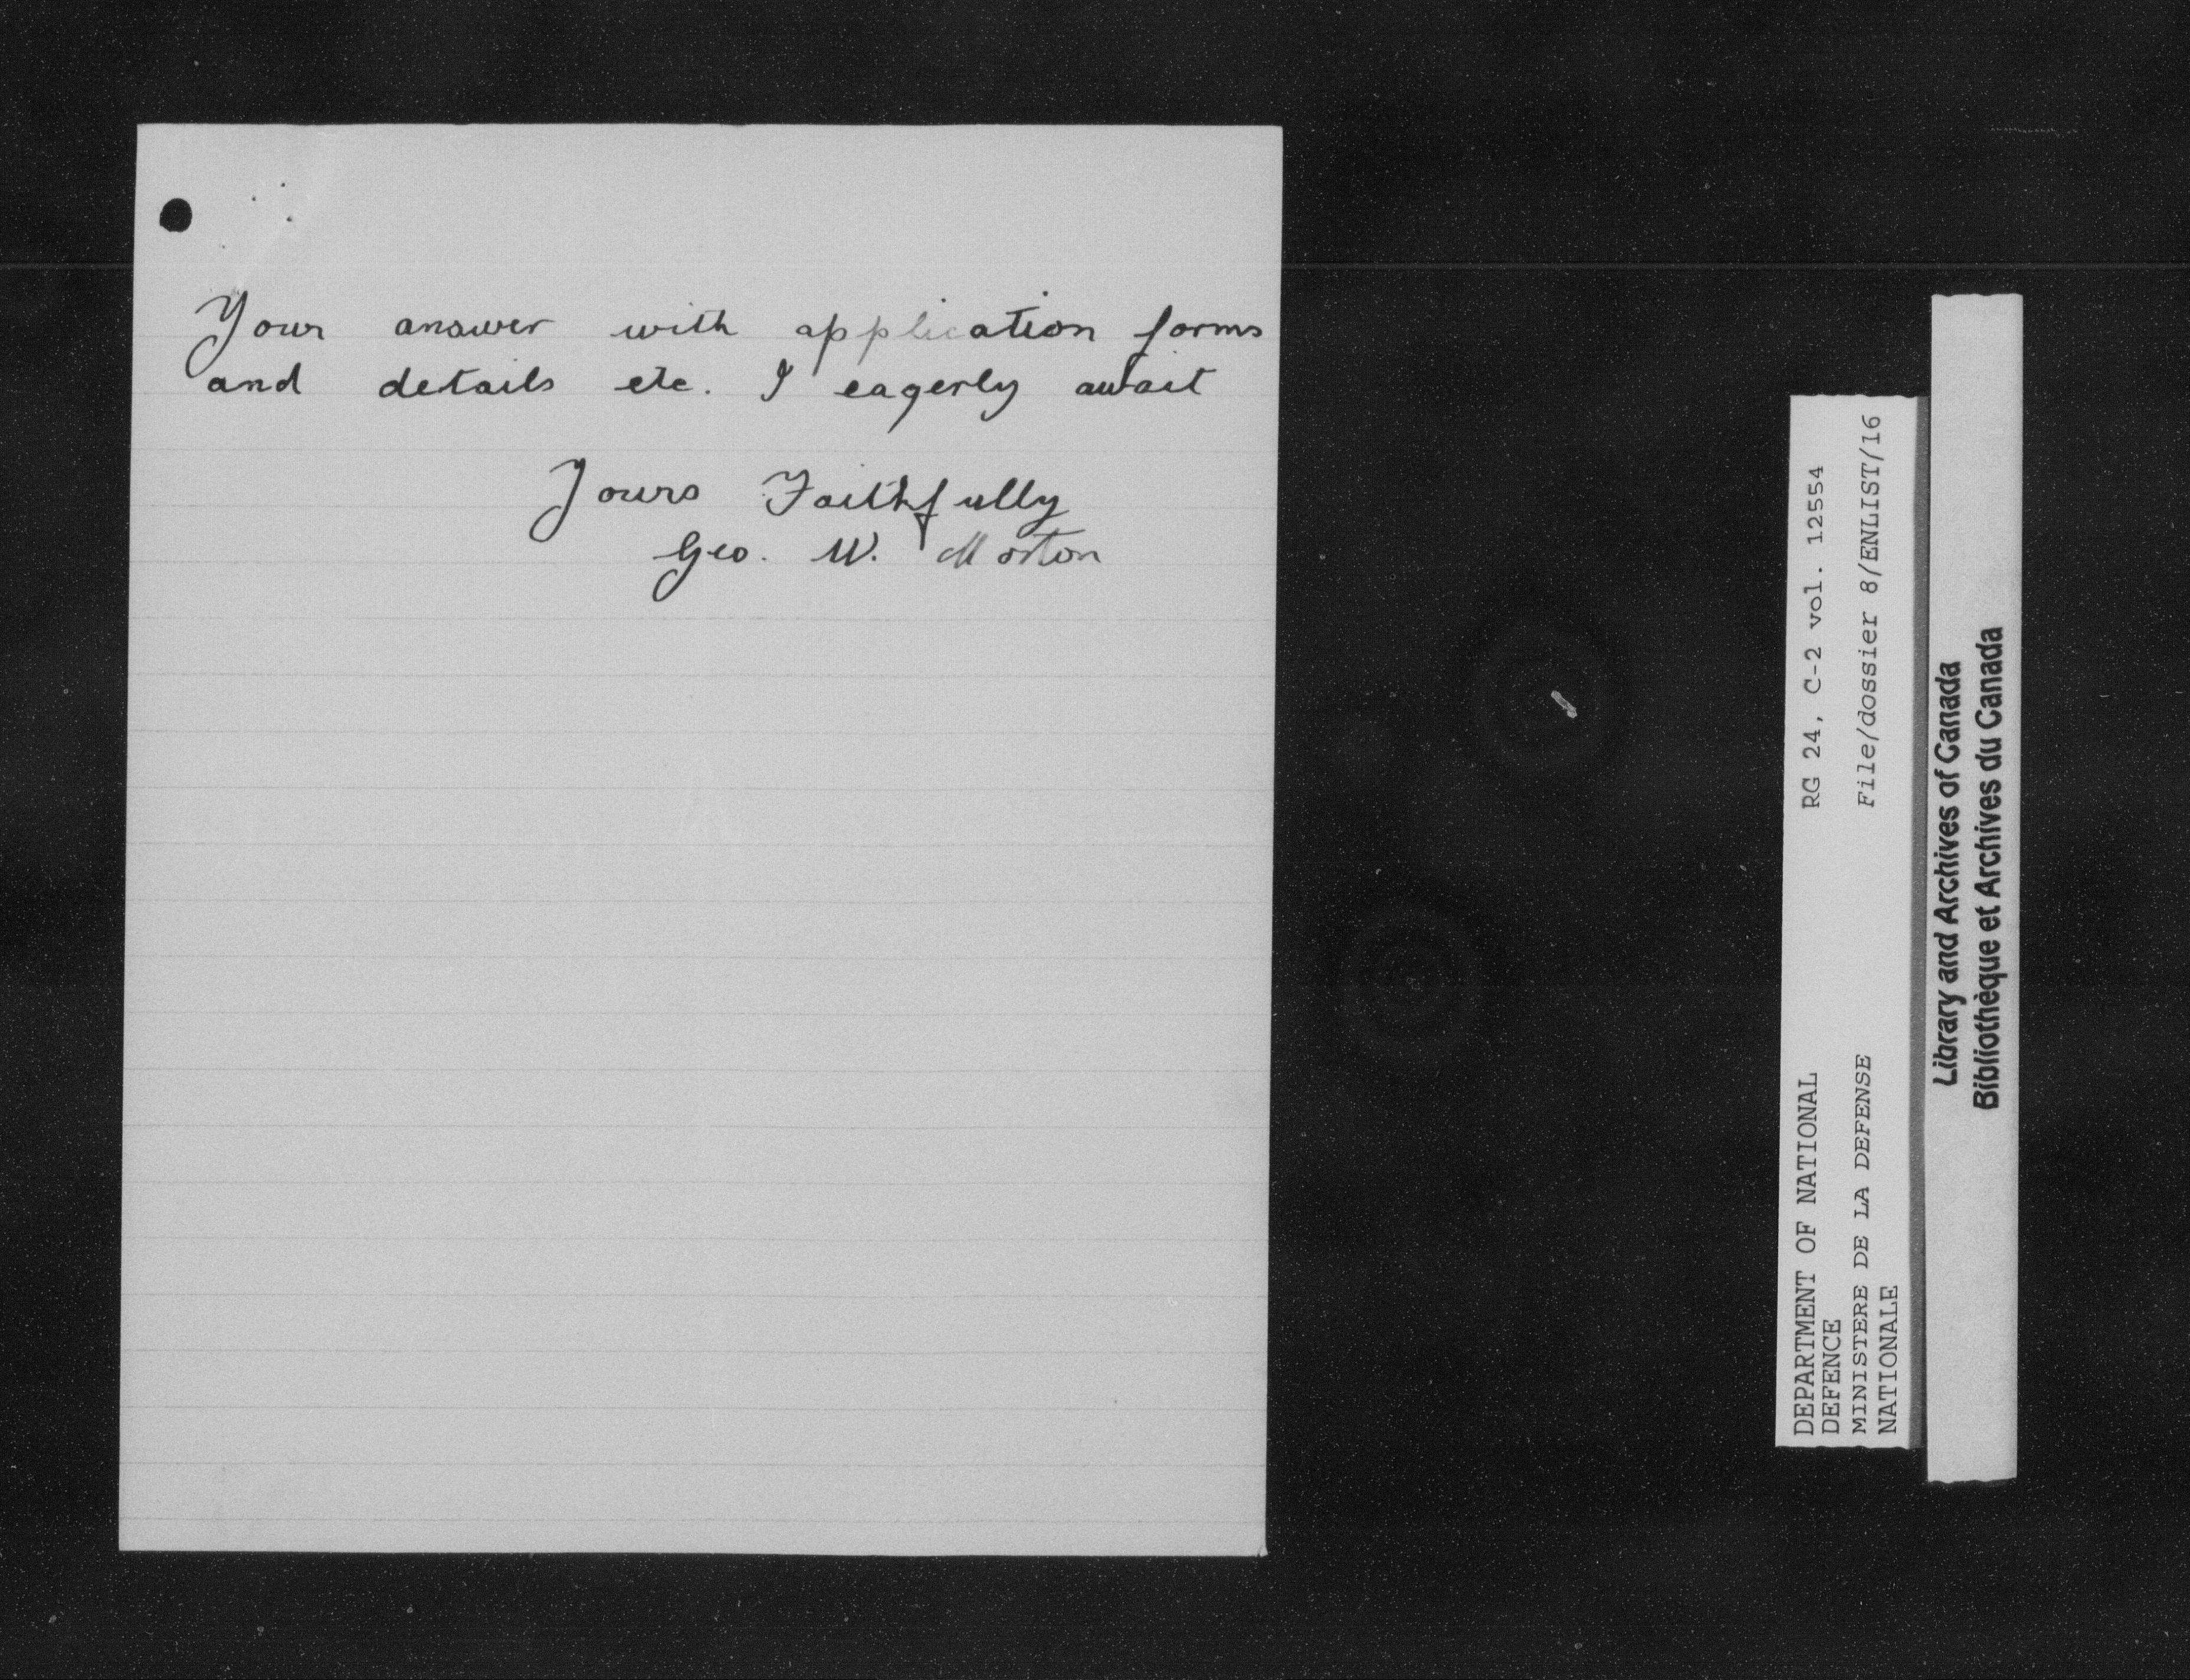 Your answer with application forms
and details etc. I eagerly await
Yours Faithfully
Geo. W. Morton
RG 24, C-2 vol. 12554
File/dossier 8/ENLIST/16
DEPARTMENT OF NATIONAL
DEFENCE
MINISTERE DE LA DEFENSE
NATIONALE
Library and Archives of Canada
Bibliothèque et Archives du Canada